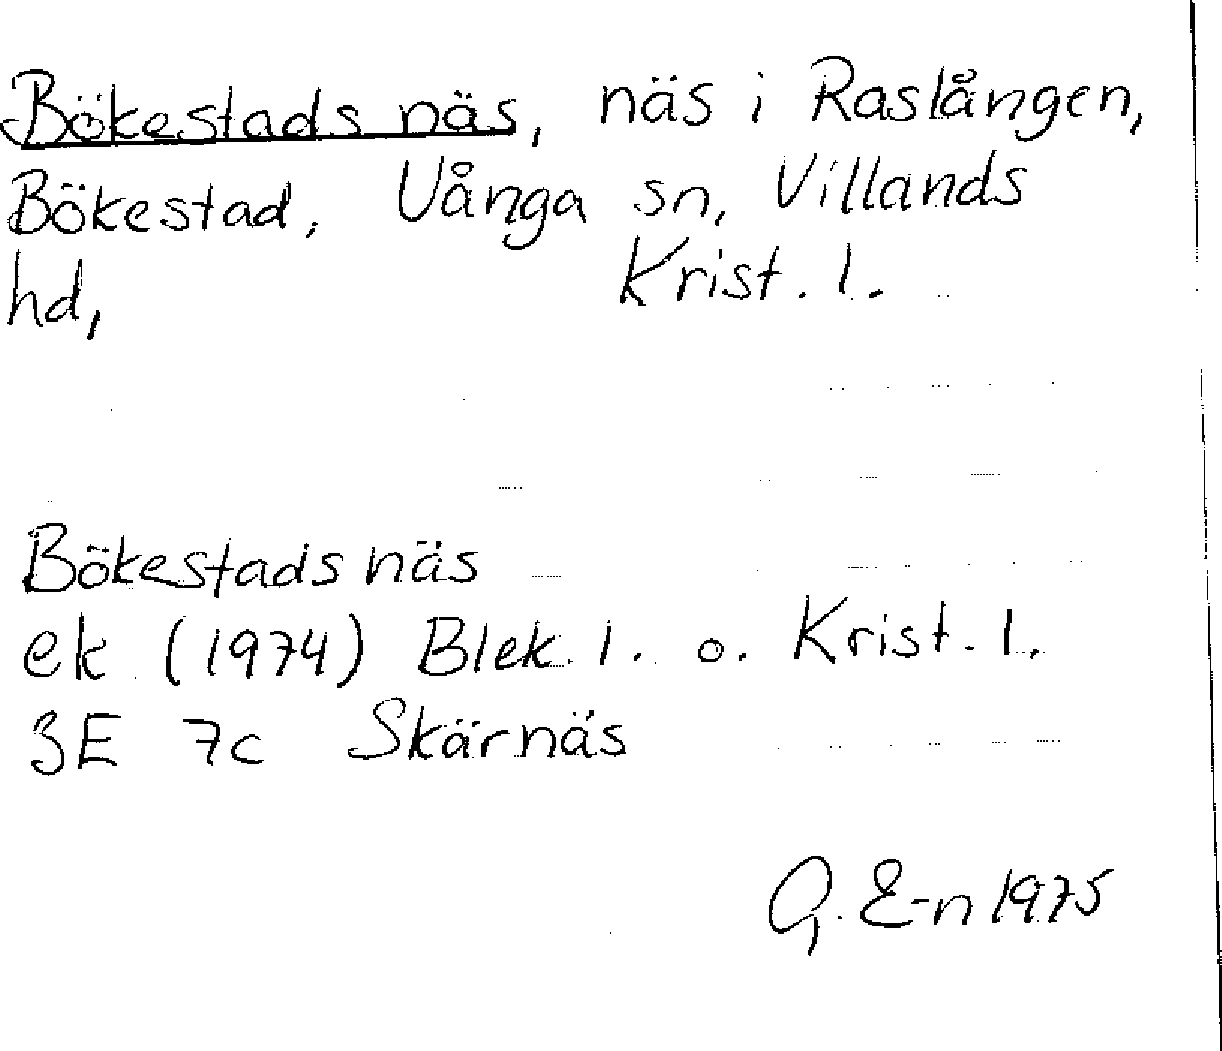 Bökestads näs, näs i Raslången,
Bökestad, Vånga sn, Villands
hd, Krist. l.
Bökestads näs
ek (1974) Blek. l. o. Krist. l.
3E 7c Skärnäs
G. E-n 1975